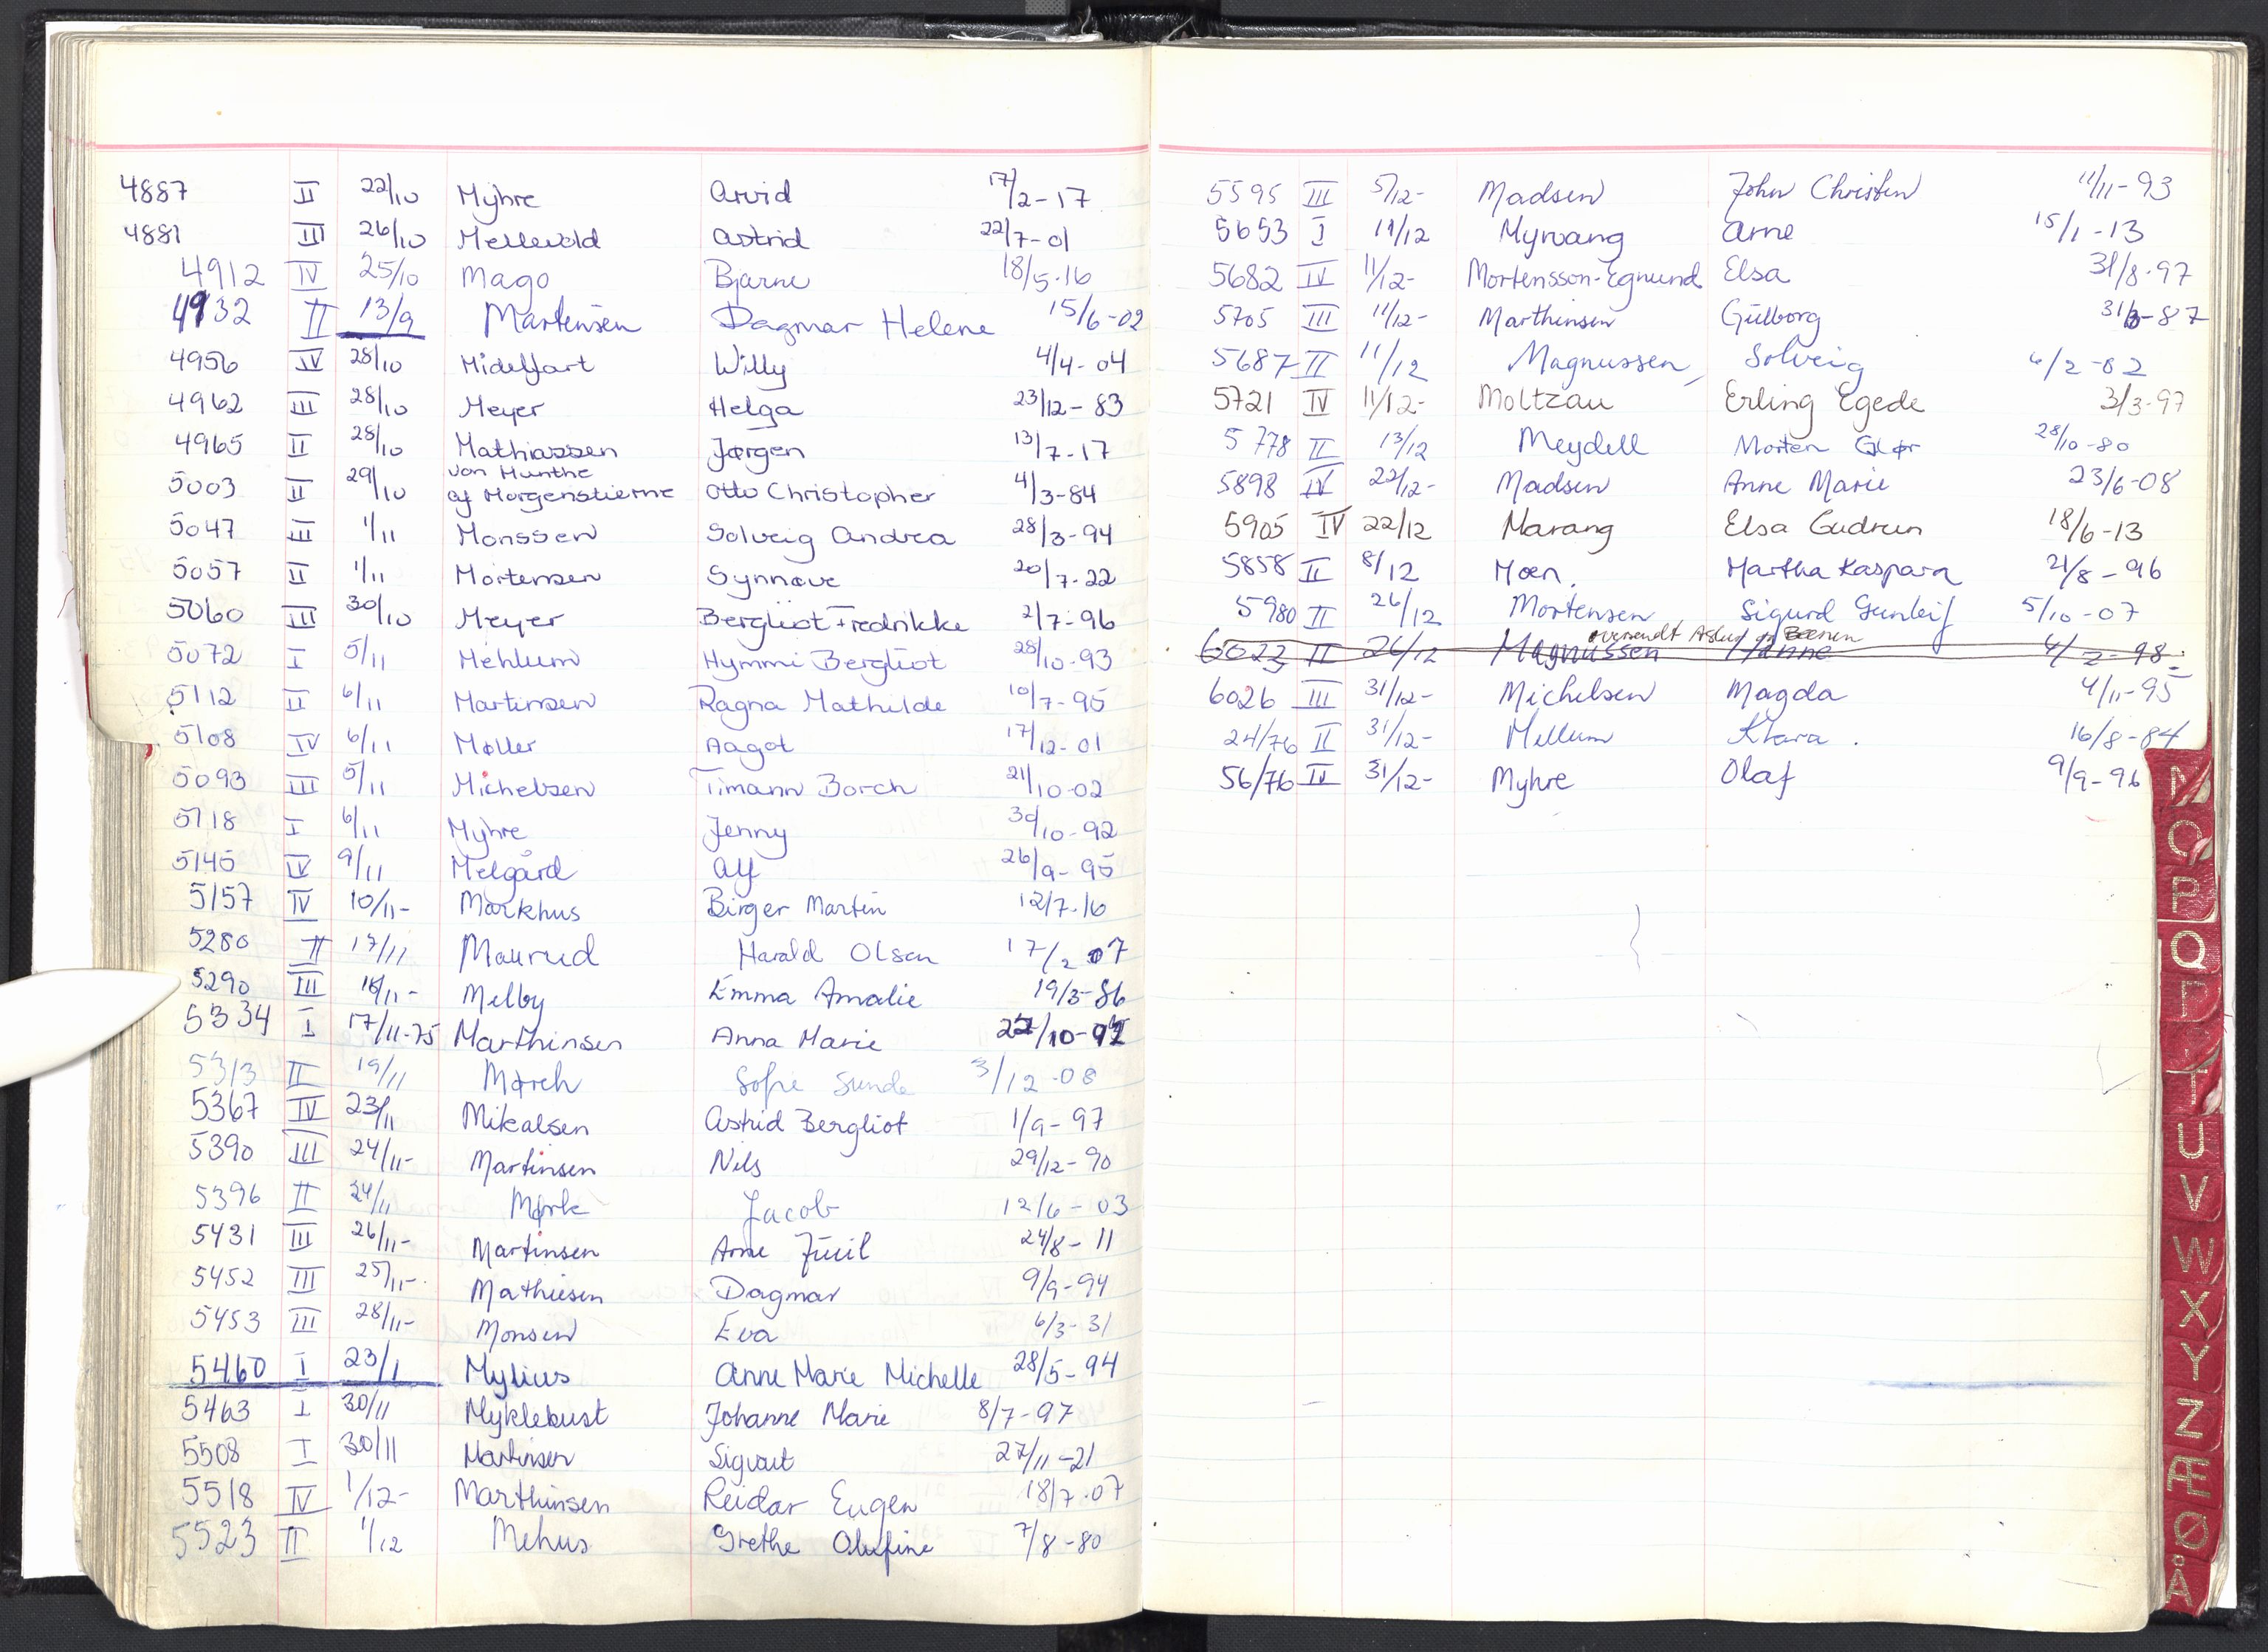 4887 II 22/10 Myhre Arvid 17/2-17
4881 III 26/10 Mellevold Astrid 22/7-01
4912 IV 25/10 Mago Bjarne 18/5-16
4932 II 13/9 Martensen Dagmar Helene 15/6-02
4956 IV 28/10 Midelfart Willy 4/4-04
4962 III 28/10 Meyer Helga 23/12-83
4965 II 28/10 Mathiassen Jørgen 13/7-17
von Munthe
5003 II 29/10 af Morgenstierne Otto Christopher 4/3-84
5047 III 1/11 Monssen Solveig Andrea 28/3-94
5057 II 1/11 Mortensen Synnøve 20/7-22
5060 III 30/10 Meyer Bergliot Fredrikke 2/7-96
5072 I 5/11 Mehlum Hymmi Bergliot 28/10-93
5112 II 6/11 Martinsen Ragna Mathilde 10/7-95
5108 IV 6/11 Møller Aagot 17/12-01
5093 III 5/11 Michelsen Timann Borch 21/10-02
5118 I 6/11 Myhre Jenny 30/10-92
5145 IV 9/11 Melgård Alf 26/9-95
5157 IV 10/11- Markhus Birger Martin 12/7-16
5280 II 17/11 Maurud Harald Olsen 17/2 07
5290 III 18/11- Melby Emma Amalie 19/3-86
5334 I 17/11-75 Marthinsen Anna Marie /10-92
5313 II 19/11 Mørch Sofie Sunde 3/12-08
5367 IV 23/11 Mikalsen Astrid Bergliot 1/9-97
5390 III 24/11- Martinsen Nils 29/12-90
5396 II 24/11 Mørk Jacob 12/6-03
5431 III 26/11- Martinsen Arne Juul 24/8-11
5452 III 25/11- Mathiesen Dagmar 9/9-94
5453 III 28/11- Monsen Eva 6/3-31
5460 I 23/1 Mylius Anne Marie Michelle 28/5-94
5463 I 30/11 Myklebust Johanne Marie 8/7-97
5508 I 30/11 Martinsen Sigvart 27/11-21
5518 IV 1/12- Marthinsen Reidar Eugen 18/7-07
5523 II 1/12 Mehus Grethe Olufine 7/8-80
5595 III 5/12- Madsen John Christen 11/11-93
5653 I 11/12 Myrvang Arne 15/1-13
5682 IV 11/12- Mortensson-Egnund Elsa 31/8-97
5705 III 11/12- Marthinsen Gulborg 31/8-87
5687 II 11/12 Magnussen, Solveig 6/2-02
5721 IV 11/12- Moltzau Erling Egede 3/3-97
5778 II 13/12 Meydell Morten Glør 28/10-80
5898 IV 22/12- Madsen Anne Marie 23/6-08
5905 IV 22/12 Marang Elsa Gudrun 18/6-13
5858 II 8/12 Moen. Martha Kaspara 21/8-96
5980 II 26/12 Mortensen Sigurd Gunleif 5/10-07
oversendt
6023 II 26/12 Magnussen Hanne 4/2-98
6026 III 31/12- Michelsen Magda 4/11-95
24/76 II 31/12- Mellum Klara. 16/8-84
56/76 IV 31/12- Myhre Olaf 9/9-96
N
O
P
Q
T
U
V
W
X
Y
Z
Æ
Ø
Å